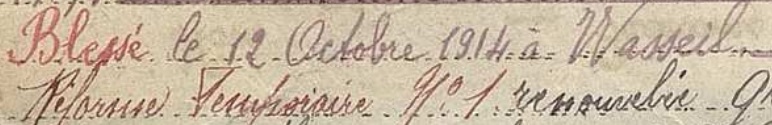 Blessé le 12 Octobre 1914 à Wasseil
Réforme Temporaire N° 1 renouvelée